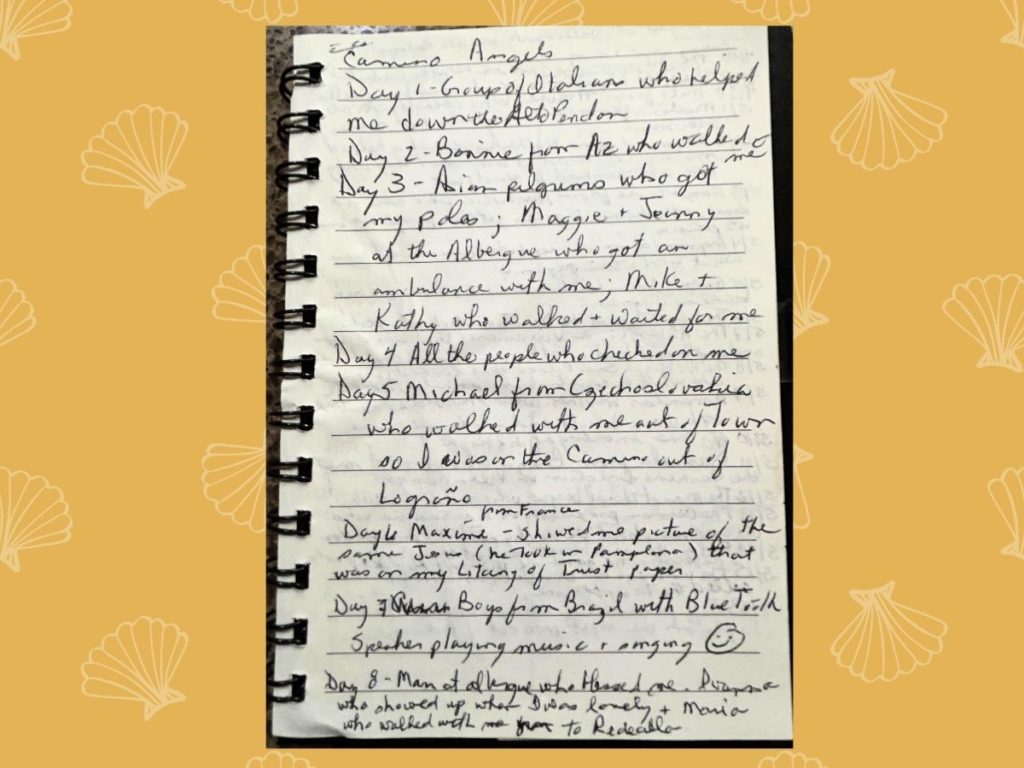 Camino Angels
Day 1 - Group of Italians who helped
me down the Alto Perdon
Day 2 - Bonnie from AZ who walked c
me
Day 3 - Asian pilgrums who got
my poles; Maggie + Jenny
at the Albergue who got an
ambulance with me; Mike +
Kathy who walked + waited for me
Day 4 All the people who checked on me
Day 5 Michael from Czechoslovakia
who walked with me out of Town
so I was on the Camino out of
Logroño
from France
Day 6 Maxime - showed me picture of the
same Jesus (he took in Pamplona) that
was on my Litany of Trust paper
Day 7 Boys from Brazil with Blue Tooth
Speaker playing music + singing
Day 8 - Man at albergue who blessed me.
who showed up when I was lonely + Maria
who walked with me to